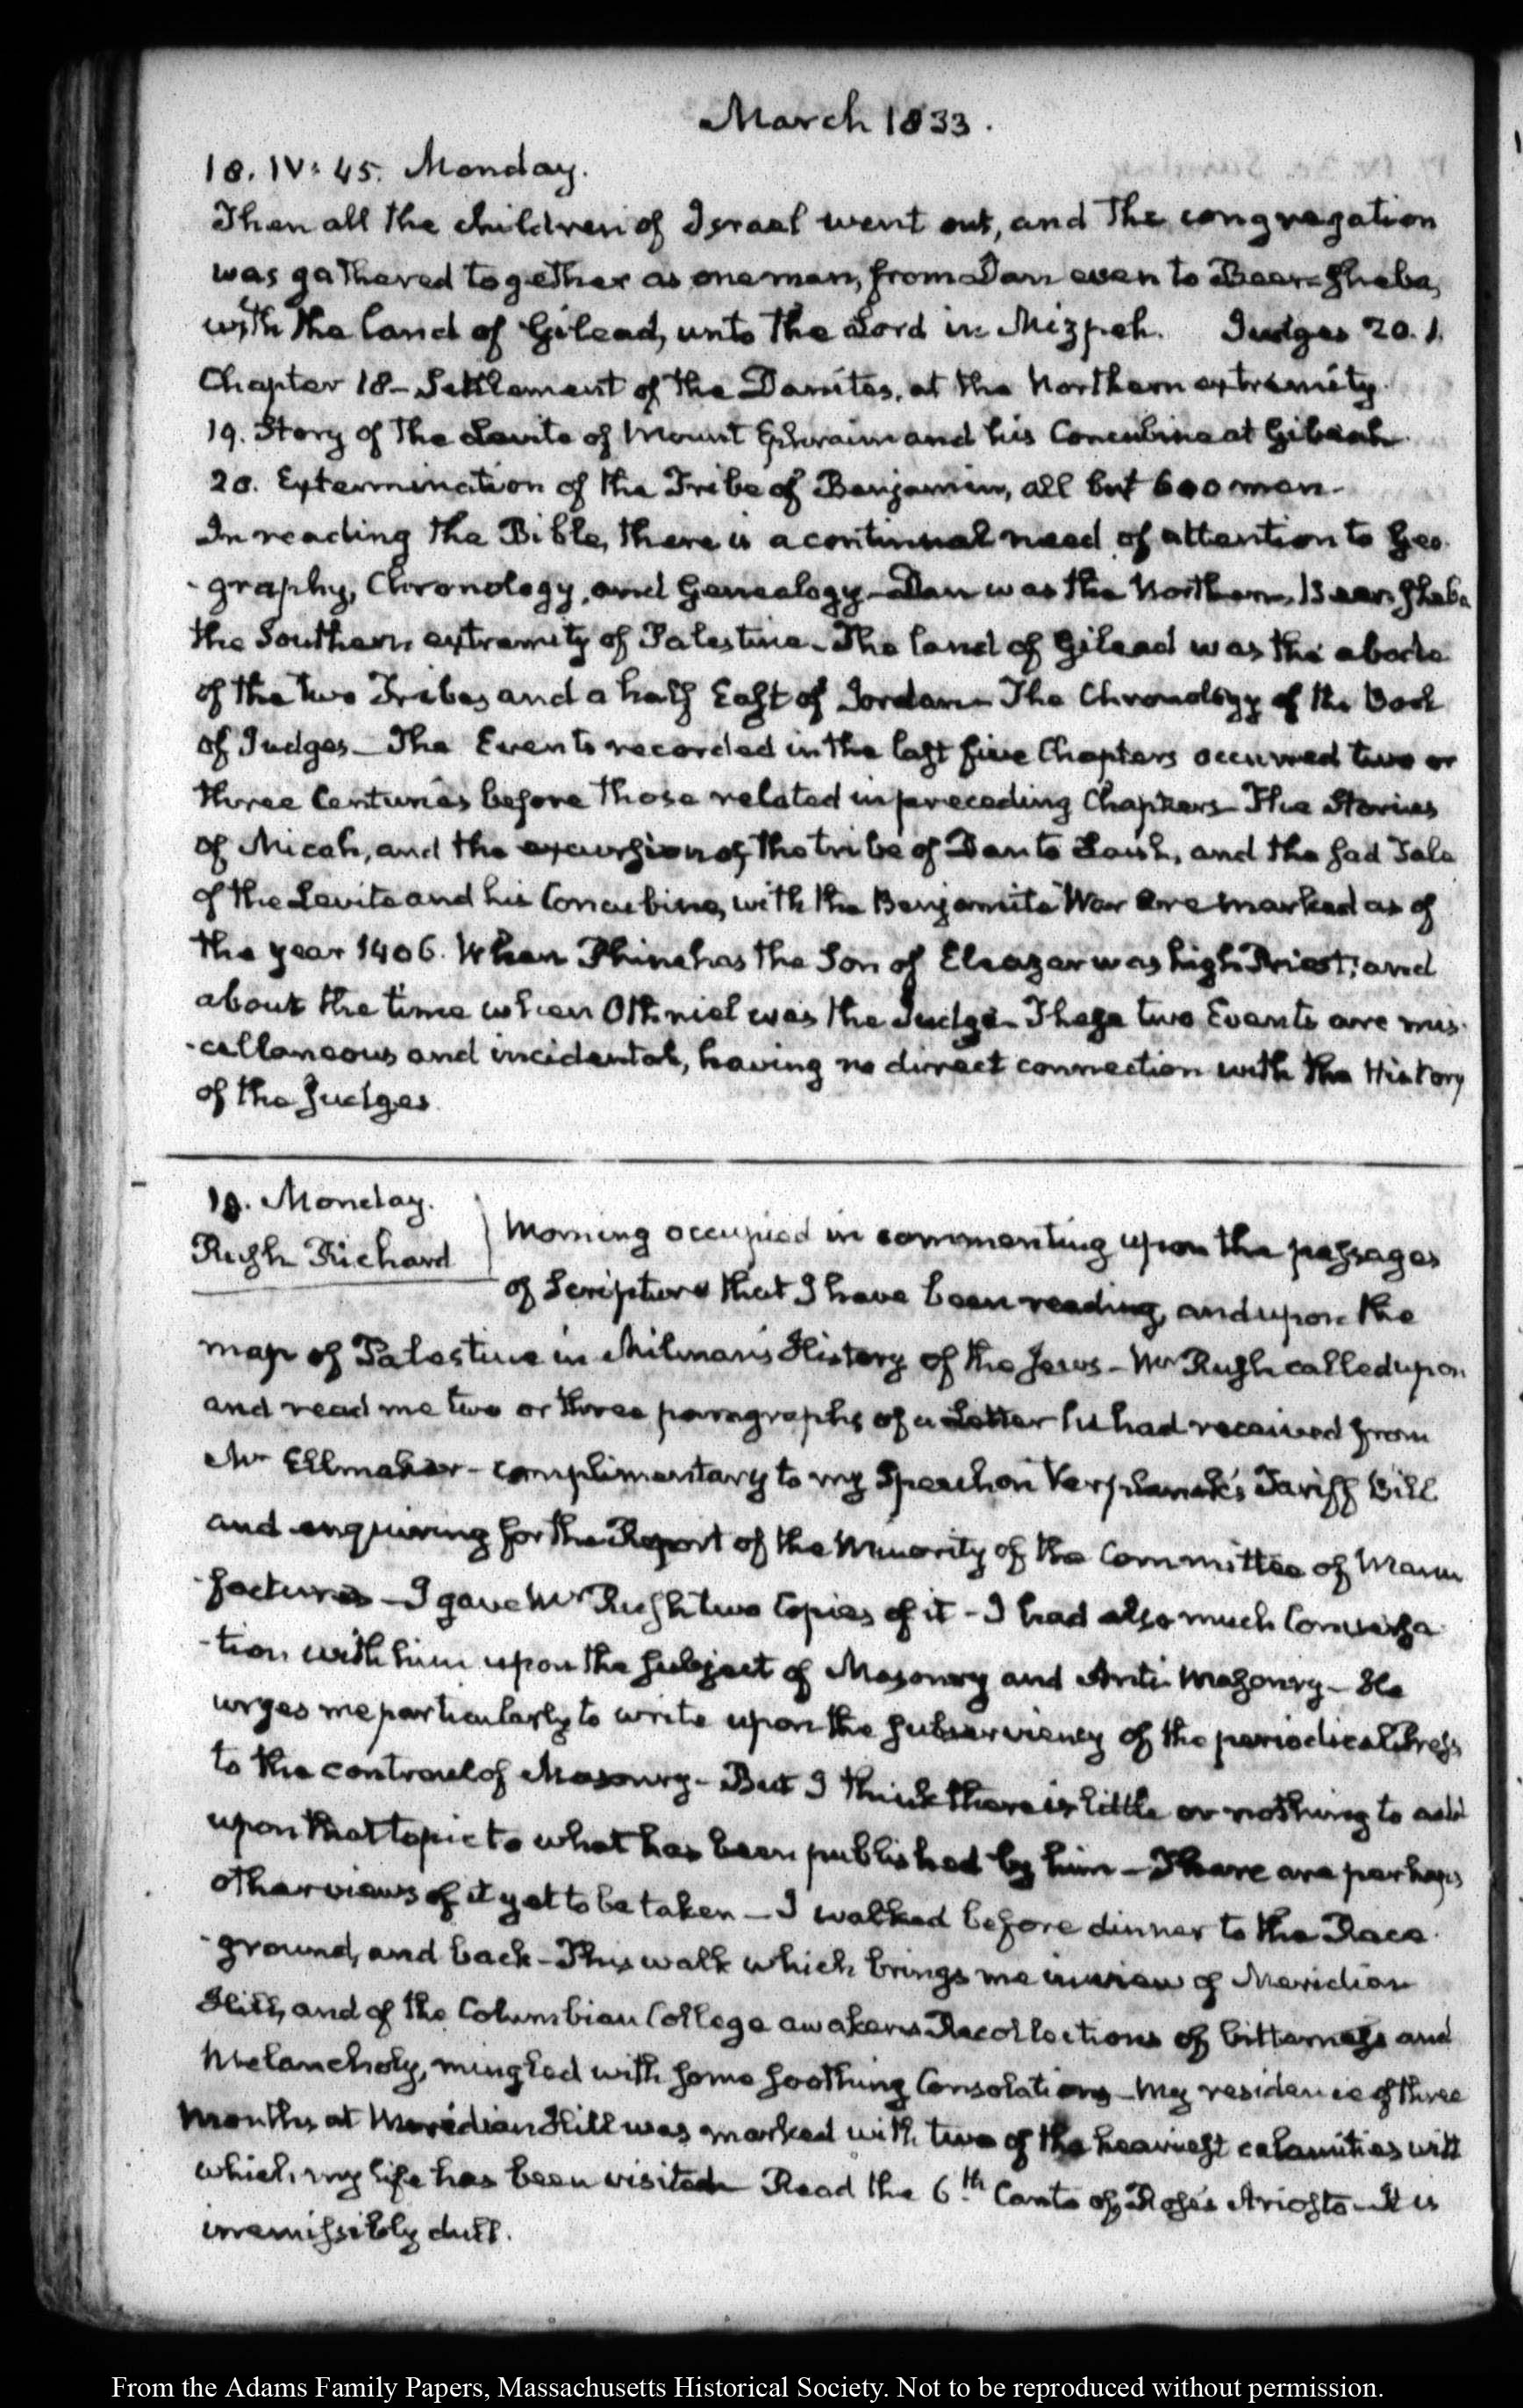 March 1833.
18. IV: 45. Monday.
Then all the children of Israel went out, and the congregation
was gathered together as one man, from Dan even to Beer-sheba,
with the land of Gilead, unto the Lord in Mizpeh. Judges 20. 1.
Chapter 18 - Settlement of the Danites, at the Northern extremity.
19. Story of the Levite of Mount Ephraim and his Concubine at Gibeah.
20. Extermination of the Tribe of Benjamin, all but 600 men.
In reading the Bible, there is a continual need of attention to Geo-
-graphy, Chronology, and Genealogy - Dan was the Northern, Beersheba
the Southern extremity of Palestine - The land of Gilead was the abode
of the two Tribes and a half East of Jordan - The Chronology of the Book
of Judges - The Events recorded in the last five Chapters occurred two or
three Centuries before those related in preceding Chapters - The Stories
of Micah, and the excursion of the tribe of Dan to Laish, and the sad Tale
of the Levite and his Concubine, with the Benjamite War are marked as of
the year 1406. When Phinehas the Son of Eleazar was high Priest, and
about the time when Othniel was the Judge - These two Events are mis-
-cellaneous and incidental, having no direct connection with the History
of the Judges.
18. Monday.
Rush Richard
Morning occupied in commenting upon the passages
of Scripture that I have been reading, and upon the
map of Palestine in Milman's History of the Jews - Mr Rush called upon
and read me two or three paragraphs of a Letter he had received from
Mr Ellmaker - complimentary to my Speech on Verplanck's Tariff Bill
and enquiring for the Report of the Minority of the Committee of Manu
-factures - I gave Mr Rush two Copies of it - I had also much Conversa
-tion with him upon the subject of Masonry and Anti-Masonry - He
urges me particularly to write upon the subserviency of the periodical Press
to the controul of Masonry - But I think there is little or nothing to add
upon that topic to what has been published by him - There are perhaps
other views of it yet to be taken - I walked before dinner to the Race-
-ground, and back - This walk which brings me in view of Meridian
Hill, and of the Columbian College awakens Recollections of bitterness and
Melancholy, mingled with some soothing Consolations - My residence of three
Months at Meridian Hill was marked with two of the heaviest calamities with
which my life has been visited - Read the 6th. Canto of Rose's Ariosto - It is
irremissibly dull.
From the Adams Family Papers, Massachusetts Historical Society. Not to be reproduced without permission.